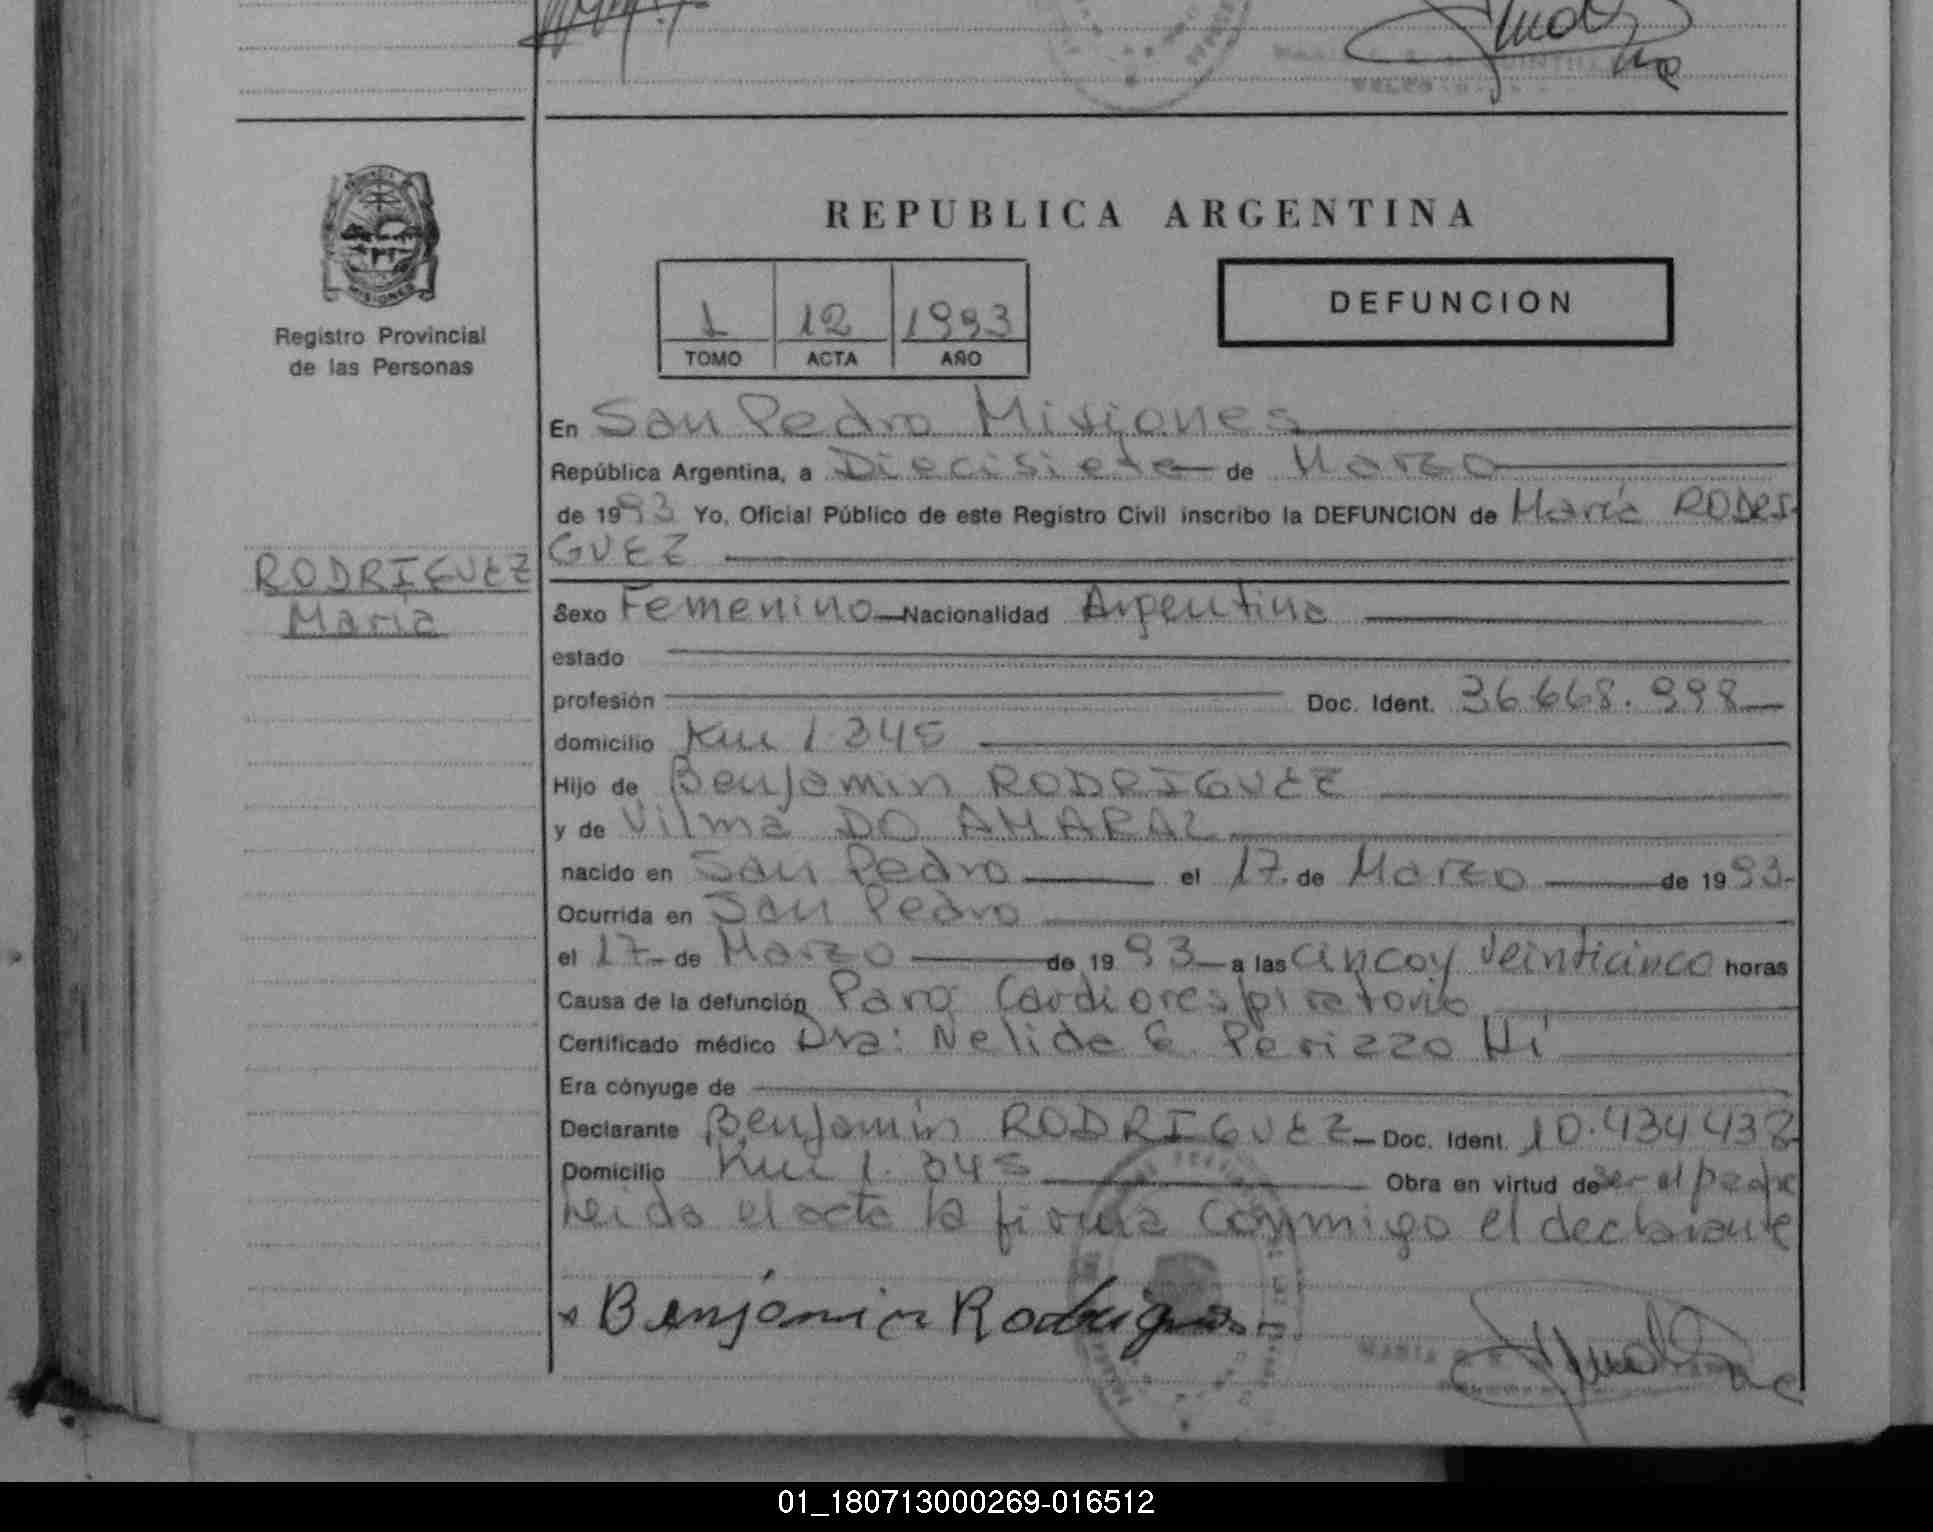 REPUBLICA ARGENTINA
MISIONES
Registro Provincial
de las Personas
1 12 1993
TOMO ACTA AÑO
DEFUNCION
En San Pedro Misiones
República Argentina, a Diecisiete de Marzo
de 1993 Yo, Oficial Público de este Registro Civil inscribo la DEFUNCION de María RODRI-
GUEZ
RODRIGUEZ
María
Sexo Femenino Nacionalidad Argentina
estado
profesión Doc. Ident. 36.668.998
domicilio Km 1.345
Hijo de Benjamin RODRIGUEZ
y de Vilma DO AMARAL
nacido en San Pedro el 17 de Marzo de 1993
Ocurrida en San Pedro
el 17 de Marzo de 1993 a las cinco y veinticinco horas
Causa de la defunción Paro Cardiorespiratorio
Certificado médico Dra: Nelida E. Perizzo
Era cónyuge de
Declarante Benjamín RODRIGUEZ Doc. Ident. 10.434.438
Domicilio Km 1.345 Obra en virtud de ser el padre
Leida el acta la firma conmigo el declarante
Benjámin Rodrigues
MARIA
01_180713000269-016512